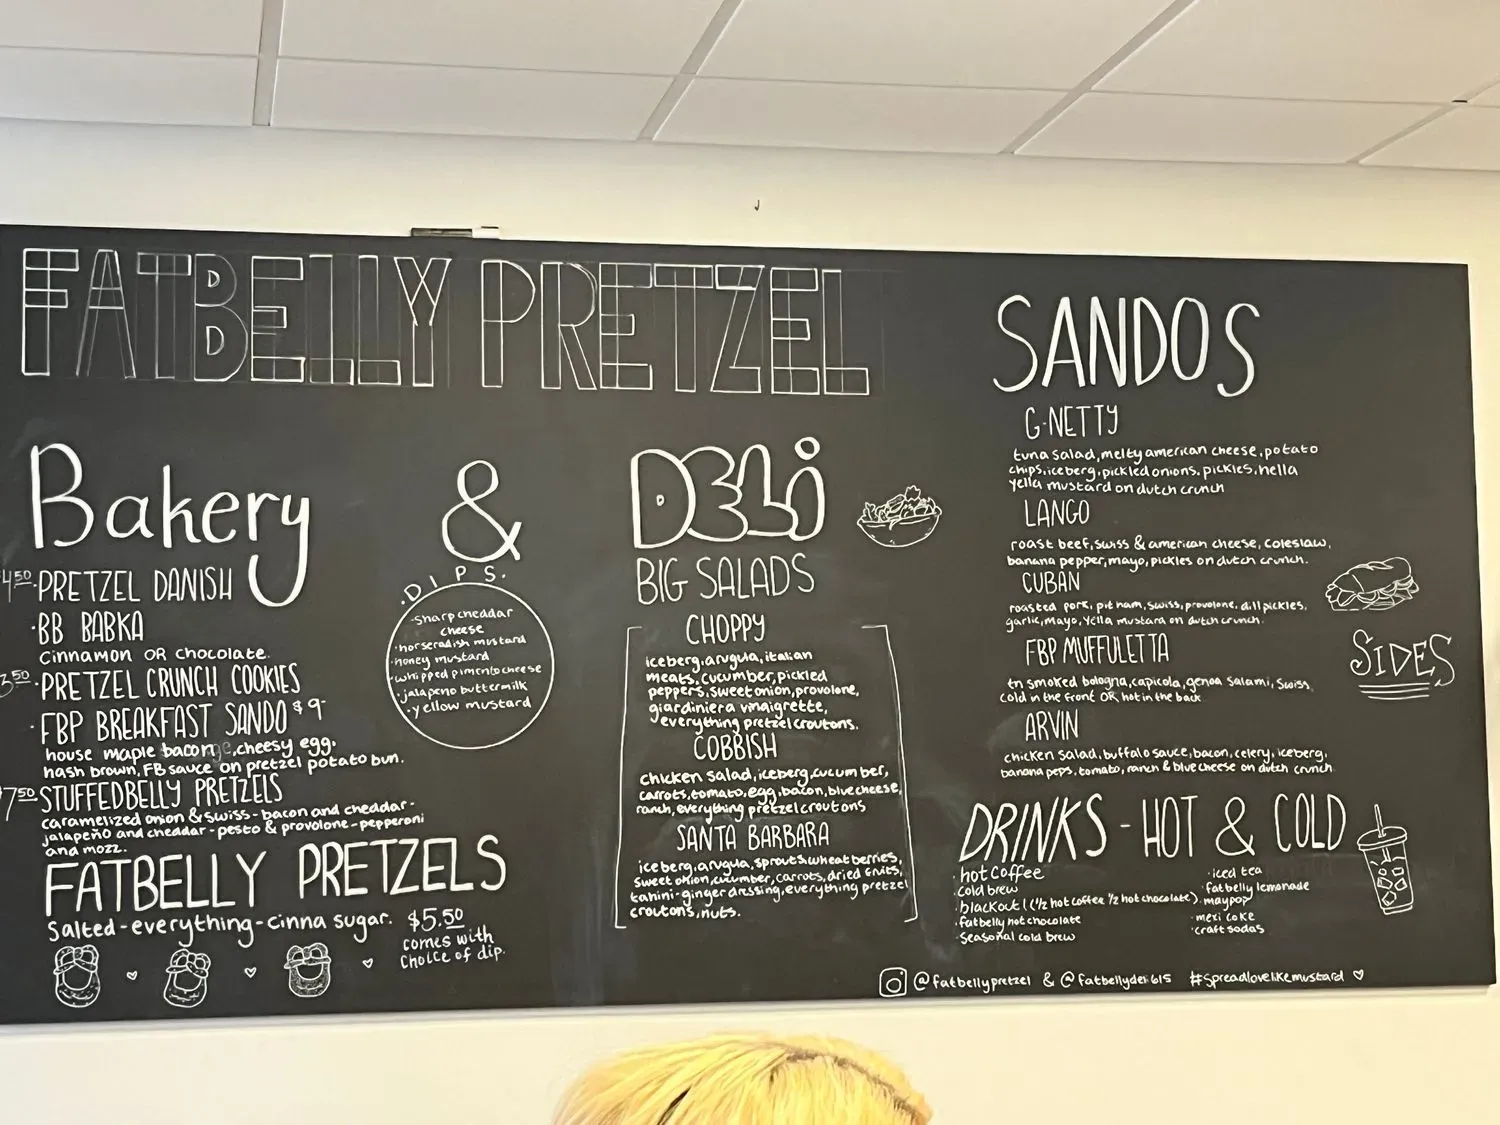 FATBELLY PRETZEL
Bakery
&
DELi
$4.50 ·PRETZEL DANISH
·BB BABKA
cinnamon OR chocolate.
3.50 ·PRETZEL CRUNCH COOKIES
·FBP BREAKFAST SANDO $9-
house maple bacon, cheesy egg.
hash brown, FB sauce on pretzel potato bun.
$7.50 STUFFEDBELLY PRETZELS
caramelized onion & swiss - bacon and cheddar -
jalapeño and cheddar - pesto & provolone - pepperoni
and mozz.
FATBELLY PRETZELS
Salted-everything-cinna sugar. $5.50
comes with
choice of dip.
·DIPS·
-sharp cheddar
cheese
·horseradish mustard
·honey mustard
·whipped pimento cheese
·jalapeno buttermilk
·yellow mustard
BIG SALADS
CHOPPY
iceberg, arugula, italian
meats, cucumber, pickled
peppers, sweet onion, provolone,
giardiniera vinaigrette,
everything pretzel croutons.
COBBISH
chicken salad, iceberg, cucumber,
carrots, tomato, egg, bacon, blue cheese,
ranch, everything pretzel croutons
SANTA BARBARA
iceberg, arugula, sprouts, wheat berries,
sweet onion, cucumber, carrots, dried fruits,
tahini-ginger dressing, everything pretzel
croutons, nuts.
SANDOS
G-NETTY
tuna salad, melty american cheese, potato
chips, iceberg, pickled onions, pickles, hella
yella mustard on dutch crunch
LANGO
roast beef, swiss & american cheese, coleslaw,
banana pepper, mayo, pickles on dutch crunch.
CUBAN
roasted pork, pit ham, swiss, provolone, dill pickles,
garlic, mayo, yella mustard on dutch crunch.
FBP MUFFULETTA
tn smoked bologna, capicola, genoa salami, swiss
cold in the front OR hot in the back
ARVIN
chicken salad, buffalo sauce, bacon, celery, iceberg,
banana peps, tomato, ranch & blue cheese on dutch crunch
SIDES
DRINKS - HOT & COLD
·hot coffee
·cold brew
·blackout! (1/2 hot coffee 1/2 hot chocolate)
·fatbelly hot chocolate
·seasonal cold brew
·iced tea
·fatbelly lemonade
·maypop
·mexi coke
·craft sodas
@fatbellypretzel & @fatbellydeli615 #spreadlovelikemustard ♡